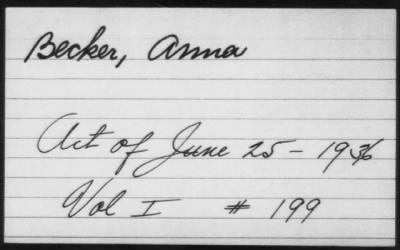 Becker, Anna
Act of June 25 - 1936
Vol I # 199